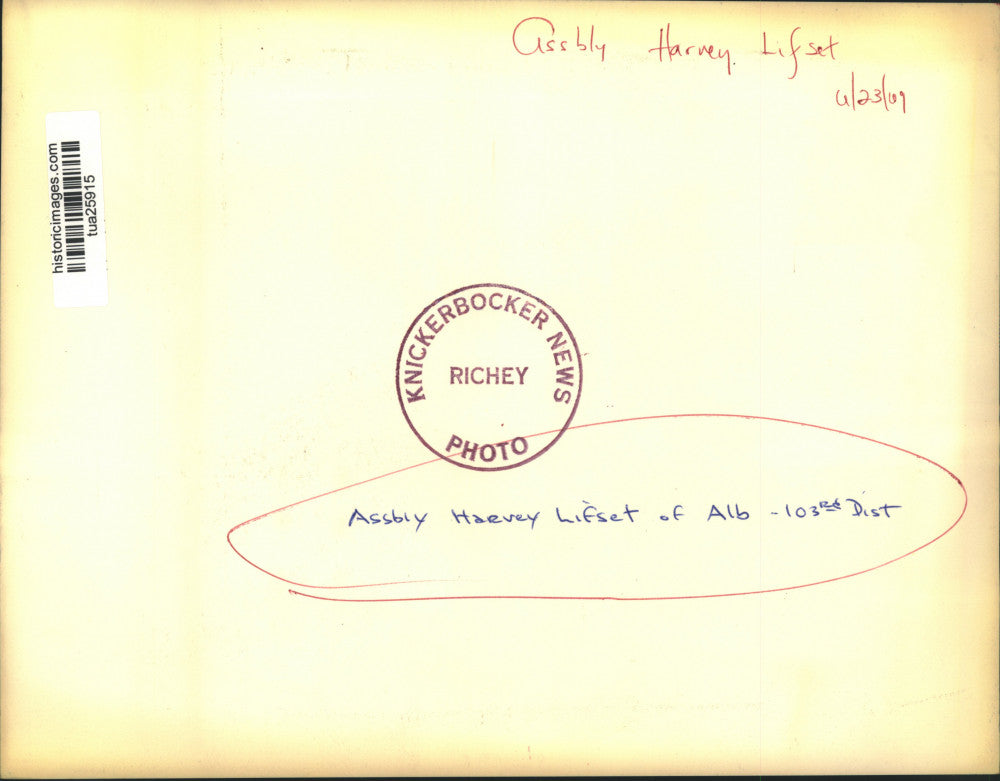 Assbly Harvey Lifset
6/23/69
historicimages.com
tua25915
KNICKERBOCKER NEWS
RICHEY
PHOTO
Assbly Harvey Lifset of Alb - 103rd Dist